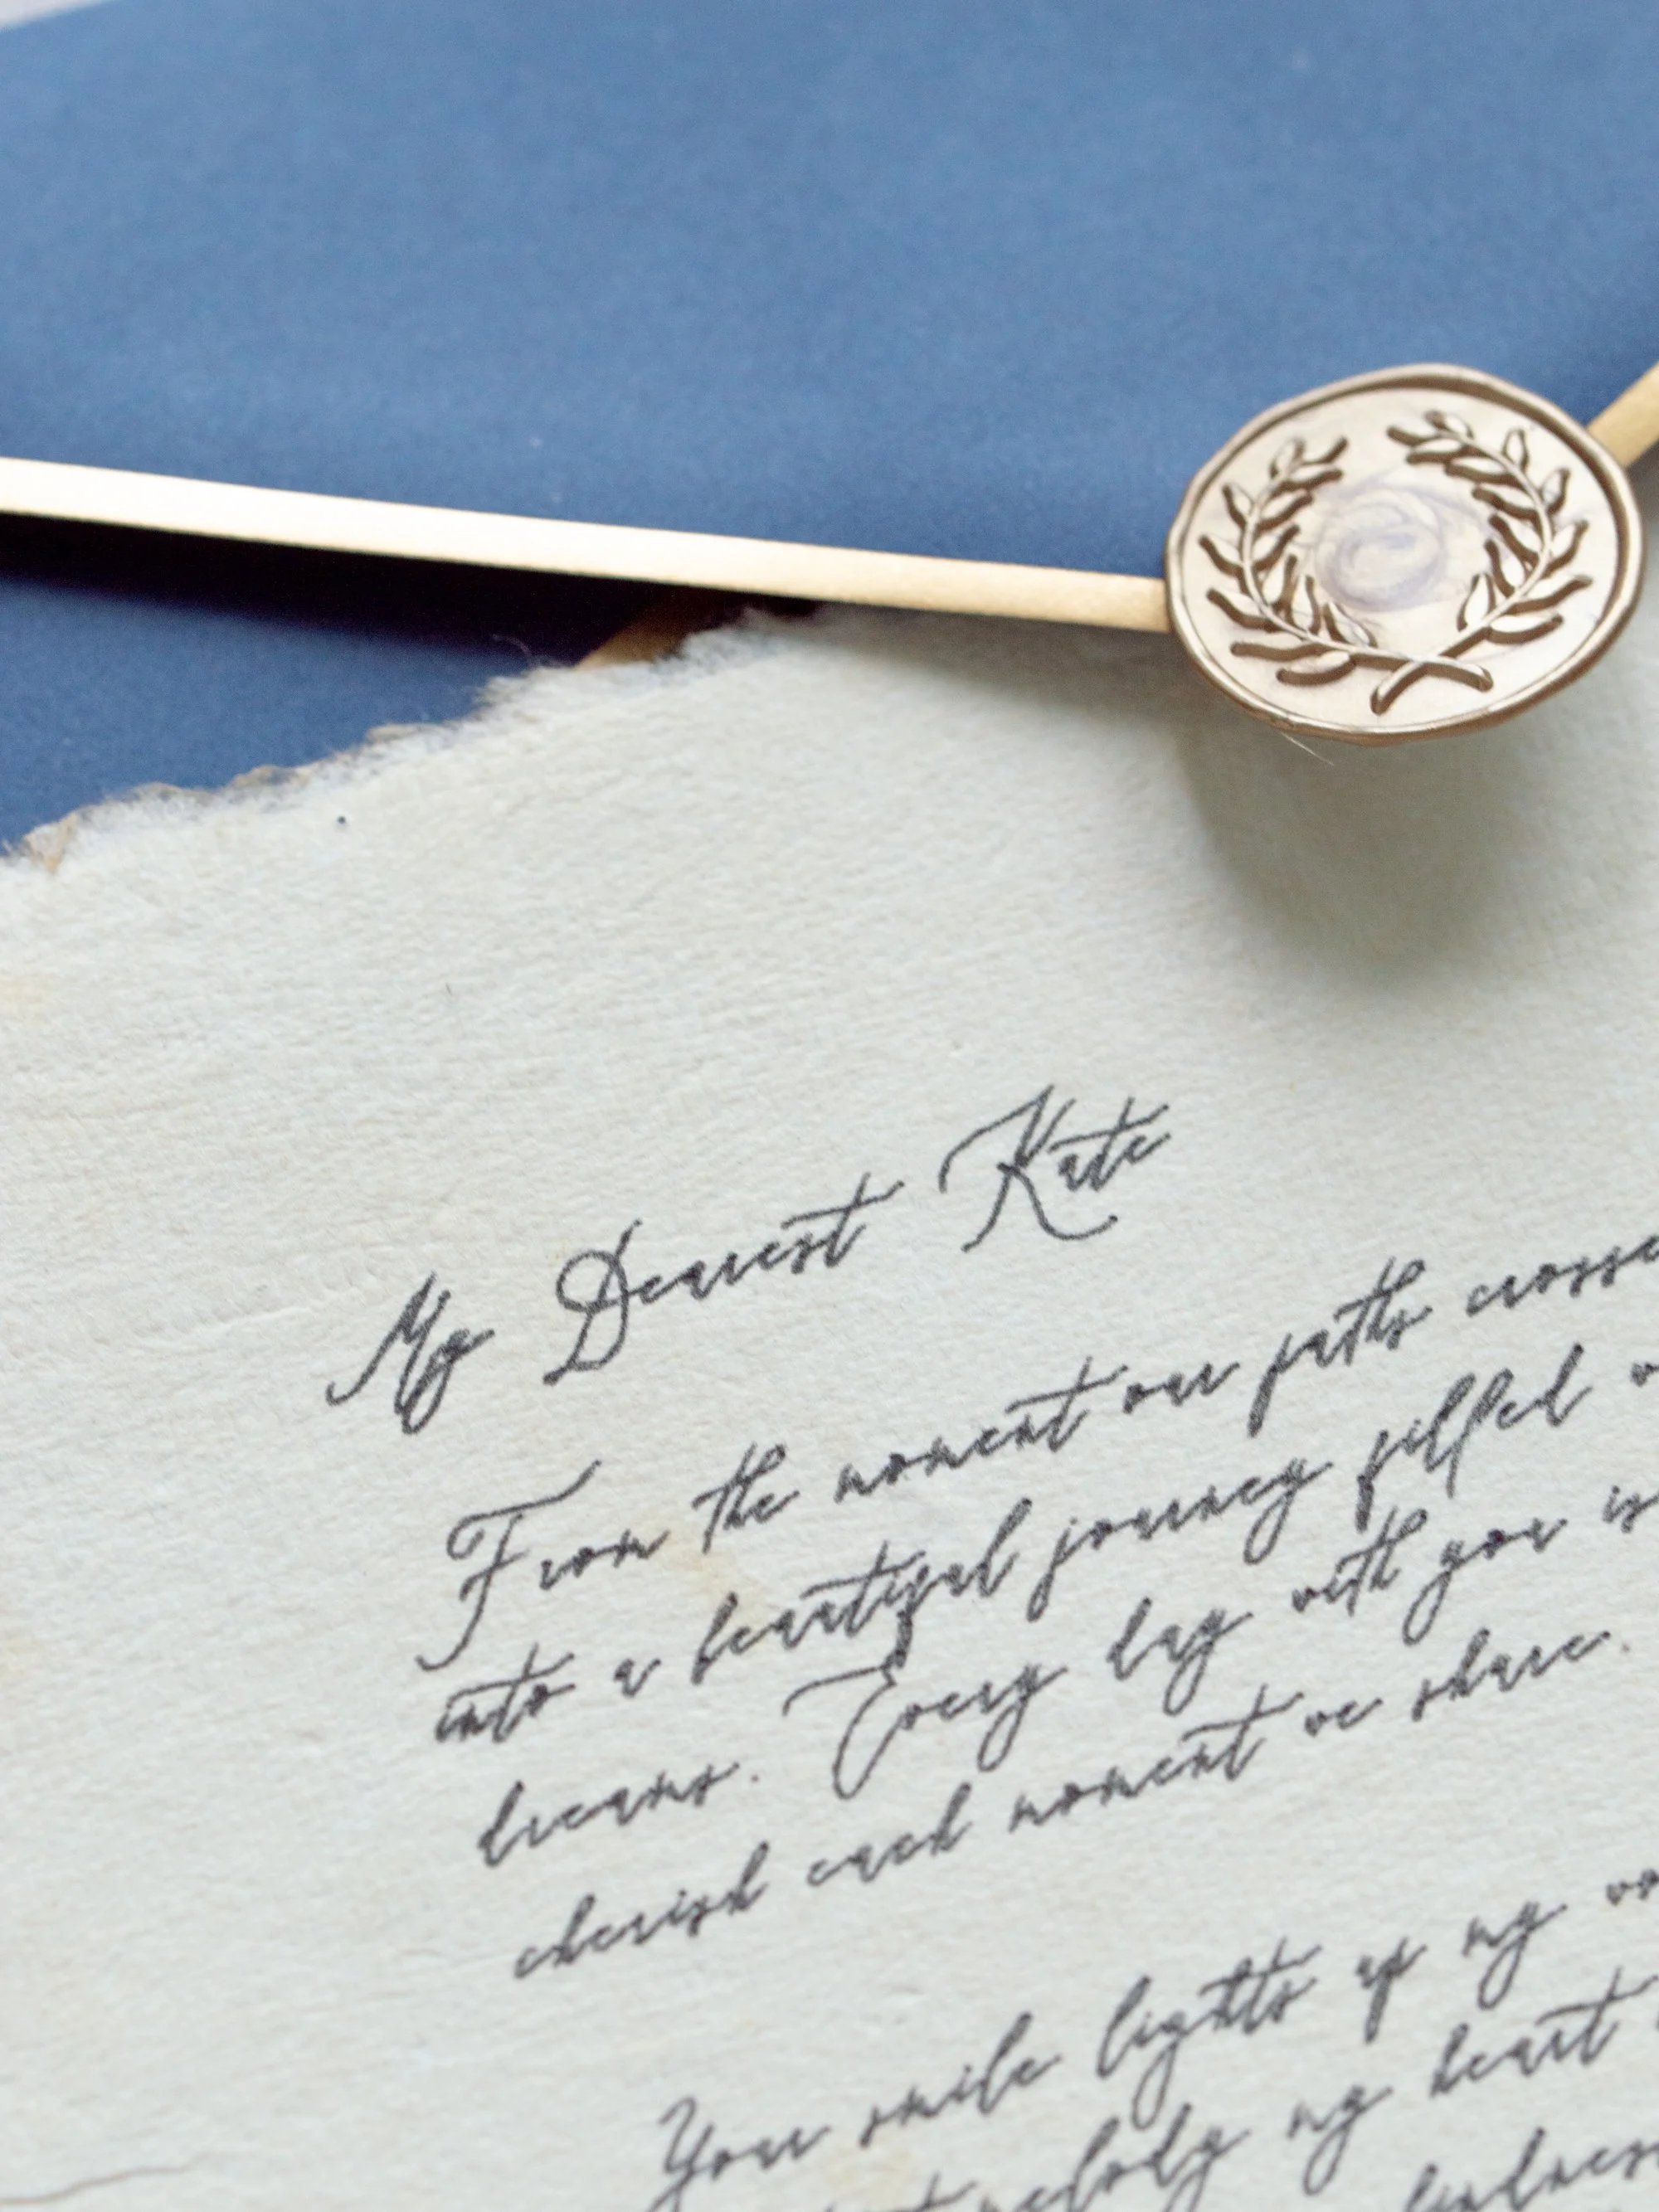 My Dearest Kate
From the moment our paths crosse
into a beautiful journey filled
dreams. Every day with you is
cherish each moment we share.
Your smile lights up my
melody my heart